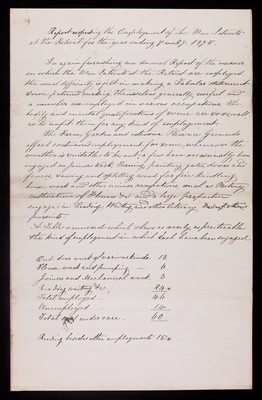 Report respecting the Employment of the Men Patients
at the Retreat for the year ending 7 mo 1875.
In again furnishing an annual Report of the manner
in which the Men Patients at the Retreat are employed
the usual difficulty is felt in making a Tabular statement
Some patients making themselves generally useful and
a number are employed in various occupations, the
bodily and mental qualifications of some are so small
as to unfit them for any kind of employment.
The Farm, Garden and extensive Pleasure Grounds
afford continual employment for some, whenever the
weather is suitable to be out, a few have occasionally been
engaged in Joiners Work, Turning, painting gates, doors and
fence, sawing and splitting wood for fire kindling,
house work and other various occupations, such as Painting
cultivation of Flowers &c and a large proportion
engage in Reading, Writing and other literary
pursuits.
A Table is annexed which shows as nearly as practicable
the kind of employment in which each have been engaged.
Out door work of various kinds. 13
House work and pumping 6
Joiners and Mechanical work 3
Reading writing &c, 24
Total employed 46
Unemployed 14
Total under care. 60
Reading besides other employments 15